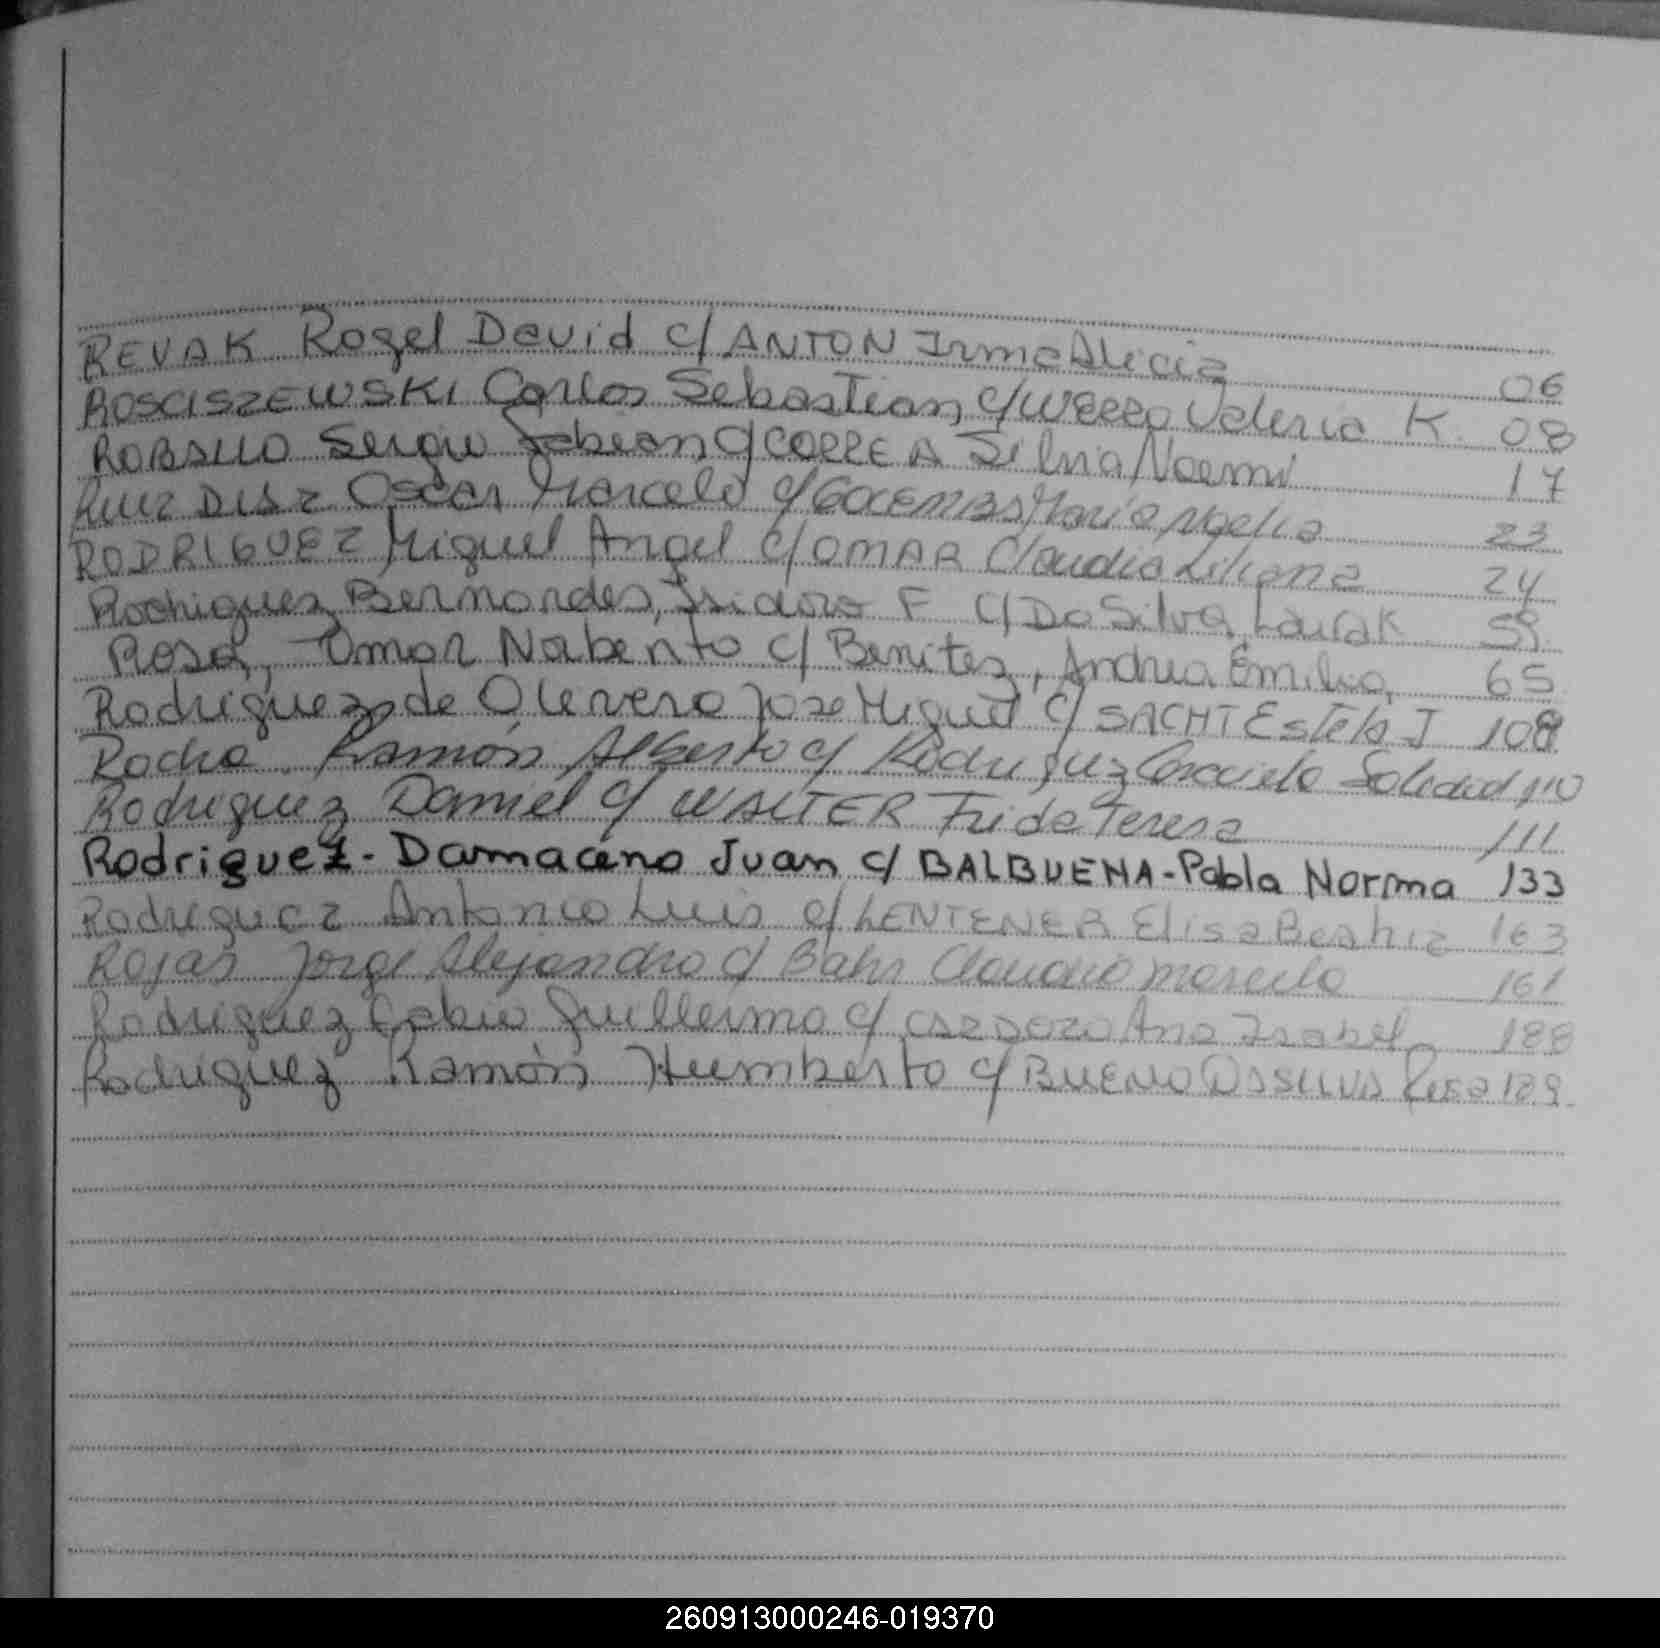 REVAK Rogel David c/ ANTON Irma Alicia 06
ROSCISZEWSKI Carlos Sebastian c/ Valeria K. 08
ROBALLO Sergio Fabian c/ CORREA Silvia Noemi 17
RUIZ DIAZ Oscar Marcelo c/ Maria Noelia 23
RODRIGUEZ Miguel Angel c/ OMAR Claudia Liliana 24
Rodriguez Bernardes, Isidoro F c/ Da Silva, Laura K 59
Rosa, Omar Norberto c/ Benitez, Andrea Emilia 65
Rodriguez de Olivera Jose Miguel c/ SACHT Estela J 108
Rocha Ramón Alberto c/ Rodriguez Graciela Soledad 110
Rodriguez Daniel c/ WALTER Frida Teresa 111
Rodriguez - Damaceno Juan c/ BALBUENA - Pabla Norma 133
Rodriguez Antonio Luis c/ LENTENER Elisa Beatriz 163
Rojas Jorge Alejandro c/ Bahr Claudia Marcela 161
Rodriguez Fabio Guillermo c/ Ana Isabel 188
Rodriguez Ramón Humberto c/ BUENO DA SILVA Rosa 189
260913000246-019370